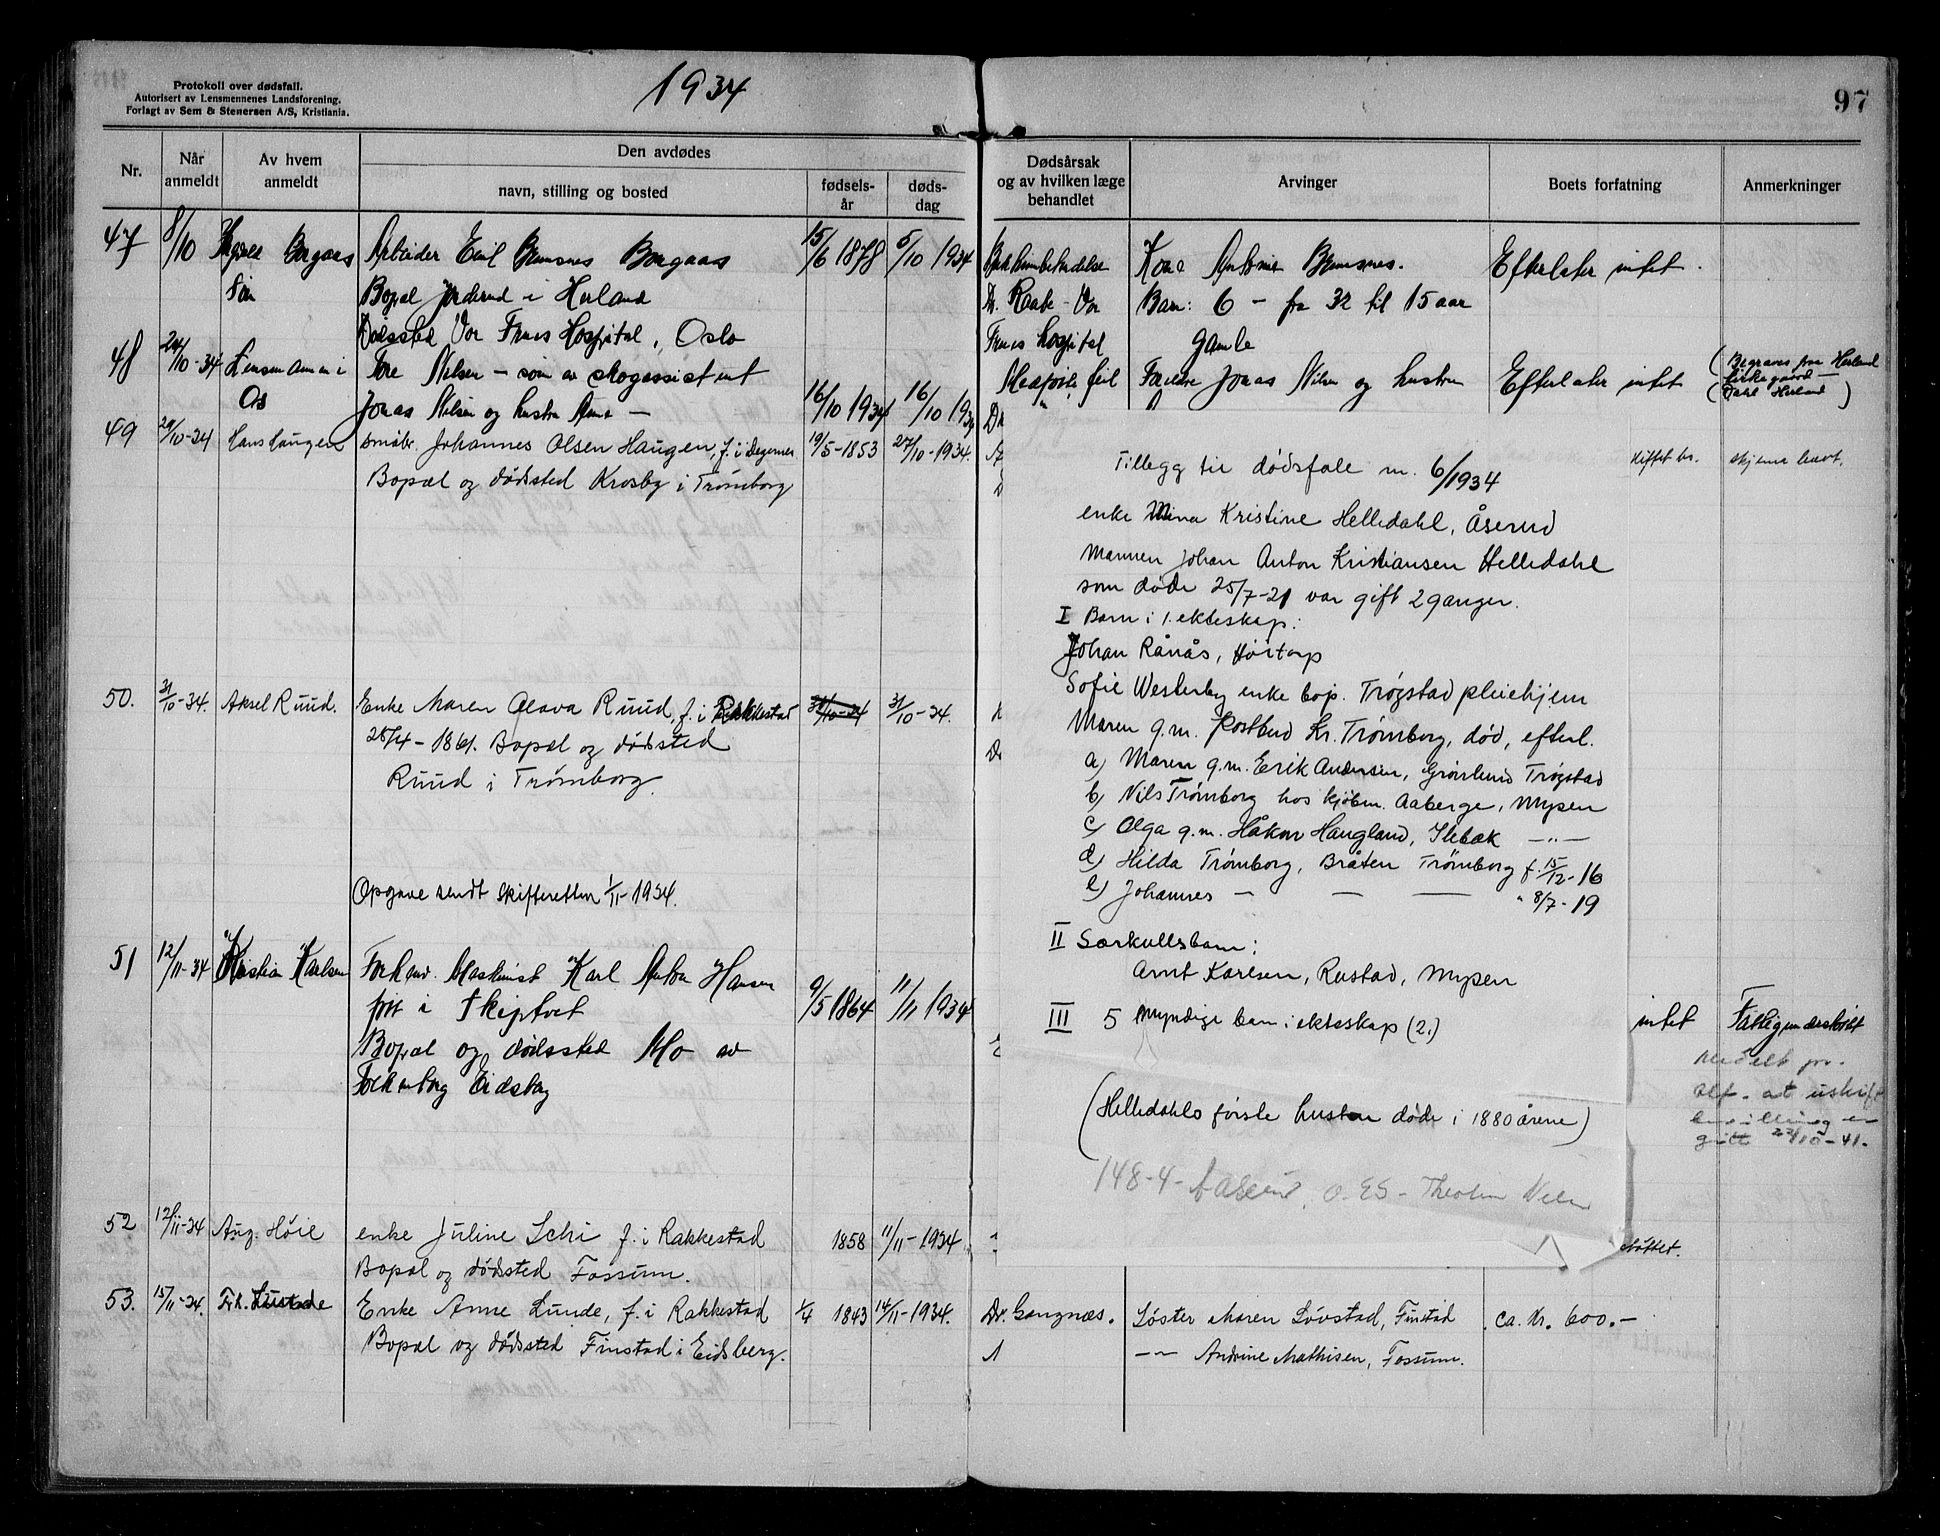 Protokoll over dødsfall.
Autorisert av Lensmennenes Landsforening.
Forlagt av Sem & Stenersen A/S, Kristiania.
1934
97
Nr.
Når anmeldt
Av hvem anmeldt
Den avdødes
navn, stilling og bosted
fødselsår
dødsdag
Dødsårsak og av hvilken læge behandlet
Arvinger
Boets forfatning
Anmerkninger
47 8/10 Borgaas Arbeider Emil Borgaas 15/6 1878 5/10 1934 Kone Antonie Efterlater intet.
Bopæl i Herland Dr. Raabe - Vor Barn: 6 - fra 32 til 15 aar
Dødssted Vor Frues Hospital, Oslo Frues hospital gamle
48 24/10-34 Lensmannen i Tore Nilsen - søn av skogassistent Medfødt feil Foreldre Jonas Nilsen og hustru Efterlater intet (Begraves paa Herland
Os Jonas Nilsen og hustru 16/10 1934 16/10 193 kirkegaard
49 29/10-34 Hans Haugen småbr. Johannes Olsen Haugen, f. i Degernes 19/5-1853 27/10-1934. skjema levt.
Bopæl og dødsted Krosby i Trømborg
Tillegg til dødsfale nr. 6/1934
enke Mina Kristine Helledahl, Åserud
Mannen Johan Anton Kristiansen Helledahl
som døde 25/7-21 var gift 2 ganger.
I Barn i 1. ekteskap:
Johan Rånås, Høitorp
Sofie Westerby enke bop. Trøgstad pleiehjem
Maren g.m. Postbud Kr. Trømborg, død, efterl.
a) Maren g.m. Erik Andersen, Grønlund Trøgstad
b) Nils Trømborg hos kjøbm. Aaberge, Mysen
c) Olga g.m. Håkon Haugland, Slebæk -"-
d) Hilda Trømborg, Bråten Trømborg f. 15/12-16
e) Johannes - - - " 8/7-19
II Særkullsbarn:
Arnt Karlsen, Rustad, Mysen
III 5 Myndige barn i ekteskap (2.)
(Helledahls første hustru døde i 1880 årene)
148-4- Aaserud, o. ES -
50. 31/10-34. Aksel Ruud. Enke Maren Olava Ruud, f. i Rakkestad 31/10-34 31/10-34.
28/4-1861. Bopæl og dødsted
Ruud i Trømborg.
Opgave sendt skifteretten 1/11-1934.
51 12/11-34 Kristian Karlsen Forhenv. Maskinist Karl Anton Hansen 9/5 1864 11/11 1934 intet Fattigunderstøtt
født i Skiptvet
Bopæl og dødssted Mo av
Folkenborg Eidsberg
Meddelt
at uskift
bevilling er
gitt 22/10-41.
52 12/11-34 Aug. Høie enke Juline Schi f. i Rakkestad 1858 11/11-1934 støttet.
Bopæl og dødsted Fossum.
53. 15/11-34. Frk. Enke Anne Lunde, f. i Rakkestad 1/4 1843 14/11-1934. Dr. Gangnæs. Søster Maren Løvstad, Finstad ca. kr. 600.-
Bopæl og dødsted Finstad i Eidsberg. -"- Andrine Mathisen, Fossum.